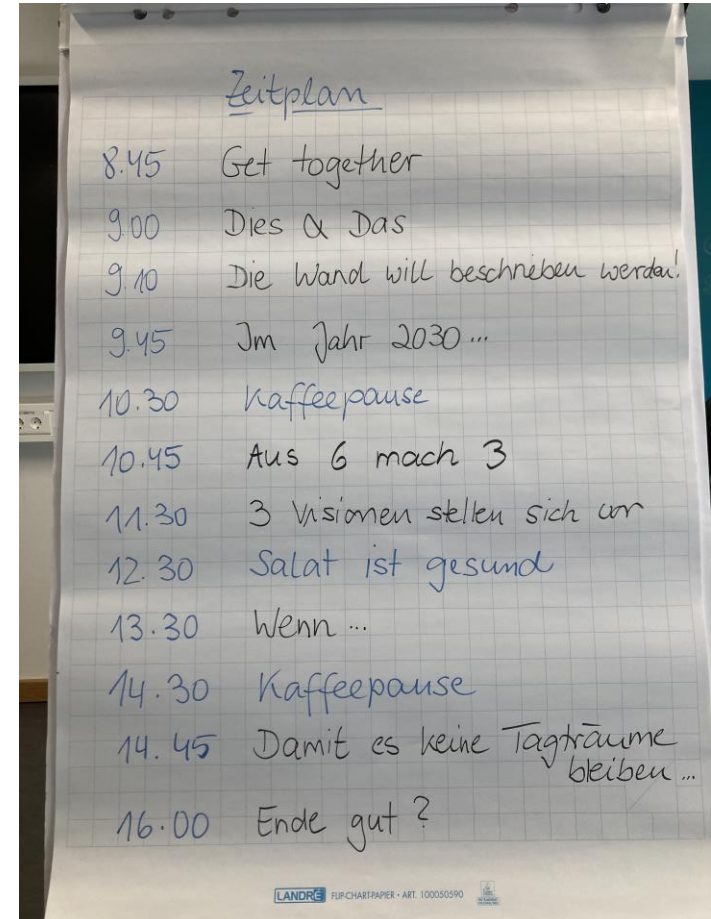 Zeitplan
8.45 Get together
9.00 Dies & Das
9.10 Die Wand will beschrieben werden!
9.45 Im Jahr 2030...
10.30 Kaffeepause
10.45 Aus 6 mach 3
11.30 3 Visionen stellen sich vor
12.30 Salat ist gesund
13.30 Wenn...
14.30 Kaffeepause
14.45 Damit es keine Tagträume
bleiben...
16.00 Ende gut?
LANDRÉ FLIP-CHART-PAPIER - ART. 100050590